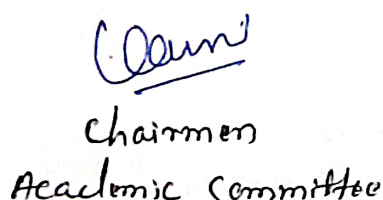 Chairmen
Academic Committee